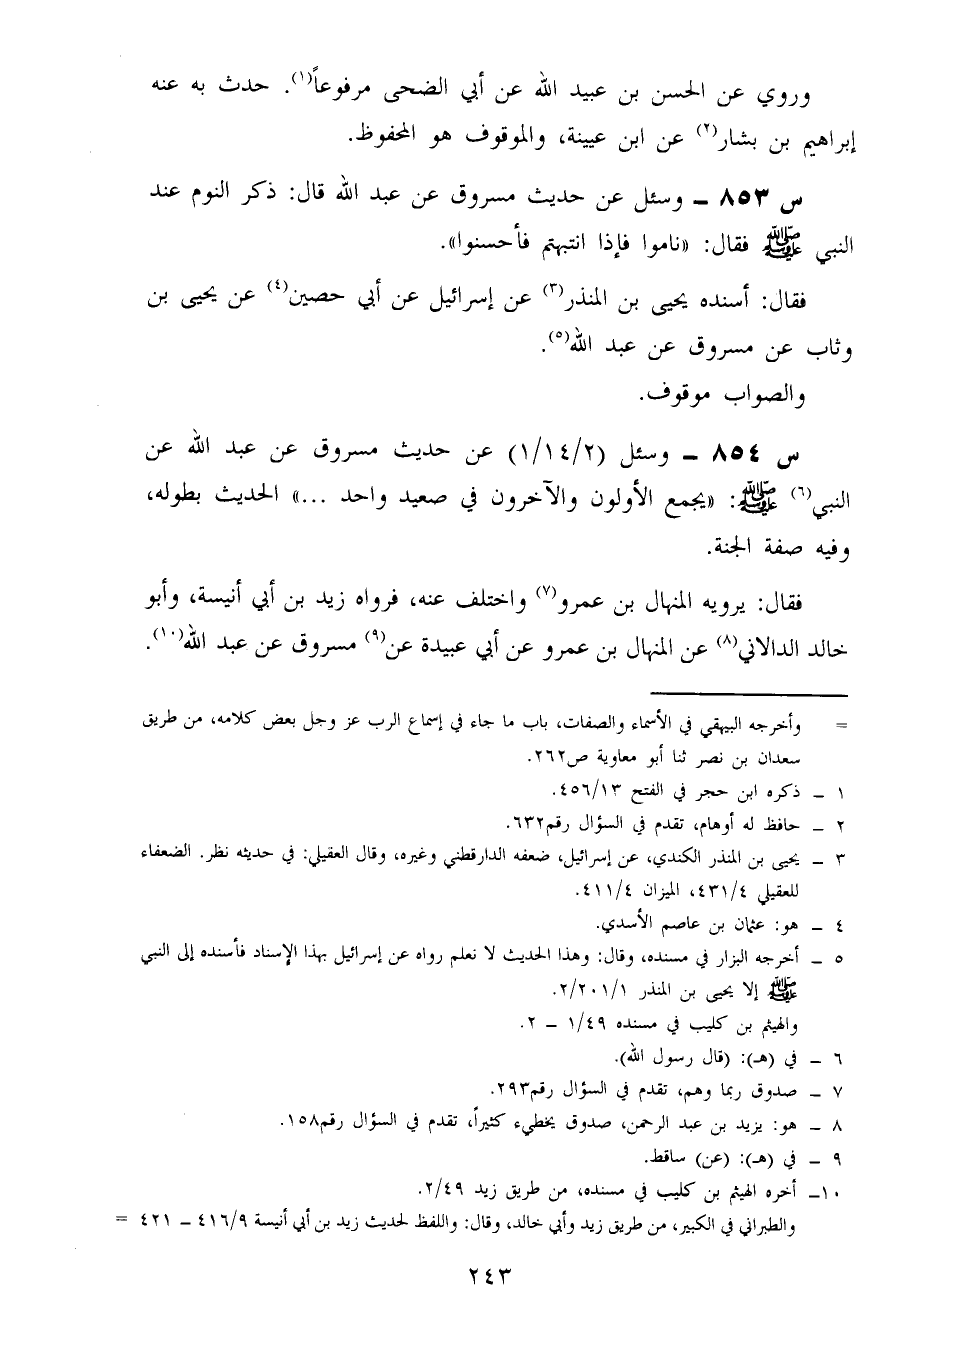 وروي عن الحسن بن عبيد الله عن أبي الضحى مرفوعاً(١). حدث به عنه
إبراهيم بن بشار(٢) عن ابن عيينة، والموقوف هو المحفوظ.
س ٨٥٣ ـ وسئل عن حديث مسروق عن عبد الله قال: ذكر النوم عند
النبي ﷺ فقال: «ناموا فإذا انتبهتم فأحسنوا».
فقال: أسنده يحيى بن المنذر(٣) عن إسرائيل عن أبي حصين(٤) عن يحيى بن
وثاب عن مسروق عن عبد الله(٥).
والصواب موقوف.
س ٨٥٤ ـ وسئل (١/١٤/٢) عن حديث مسروق عن عبد الله عن
النبي(٦) ﷺ: «يجمع الأولون والآخرون في صعيد واحد ...» الحديث بطوله،
وفيه صفة الجنة.
فقال: يرويه المنهال بن عمرو(٧) واختلف عنه، فرواه زيد بن أبي أنيسة، وأبو
خالد الدالاني(٨) عن المنهال بن عمرو عن أبي عبيدة عن(٩) مسروق عن عبد الله(١٠).
= وأخرجه البيهقي في الأسماء والصفات، باب ما جاء في إسماع الرب عز وجل بعض كلامه، من طريق
سعدان بن نصر ثنا أبو معاوية ص٢٦٢.
١ ـ ذكره ابن حجر في الفتح ٤٥٦/١٣.
٢ ـ حافظ له أوهام، تقدم في السؤال رقم٦٣٢.
٣ ـ يحيى بن المنذر الكندي، عن إسرائيل، ضعفه الدارقطني وغيره، وقال العقيلي: في حديثه نظر. الضعفاء
للعقيلي ٤٣١/٤، الميزان ٤١١/٤.
٤ ـ هو: عثمان بن عاصم الأسدي.
٥ ـ أخرجه البزار في مسنده، وقال: وهذا الحديث لا نعلم رواه عن إسرائيل بهذا الإسناد فأسنده إلى النبي
ﷺ إلا يحيى بن المنذر ٢/٢٠١/١.
والهيثم بن كليب في مسنده ١/٤٩ ـ ٢.
٦ ـ في (هـ): (قال رسول الله).
٧ ـ صدوق ربما وهم، تقدم في السؤال رقم٢٩٣.
٨ ـ هو: يزيد بن عبد الرحمن، صدوق يخطيء كثيراً، تقدم في السؤال رقم١٥٨.
٩ ـ في (هـ): (عن) ساقط.
١٠ـ أخره الهيثم بن كليب في مسنده، من طريق زيد ٢/٤٩.
والطبراني في الكبير، من طريق زيد وأبي خالد، وقال: واللفظ لحديث زيد بن أبي أنيسة ٤١٦/٩ ـ ٤٢١ =
٢٤٣